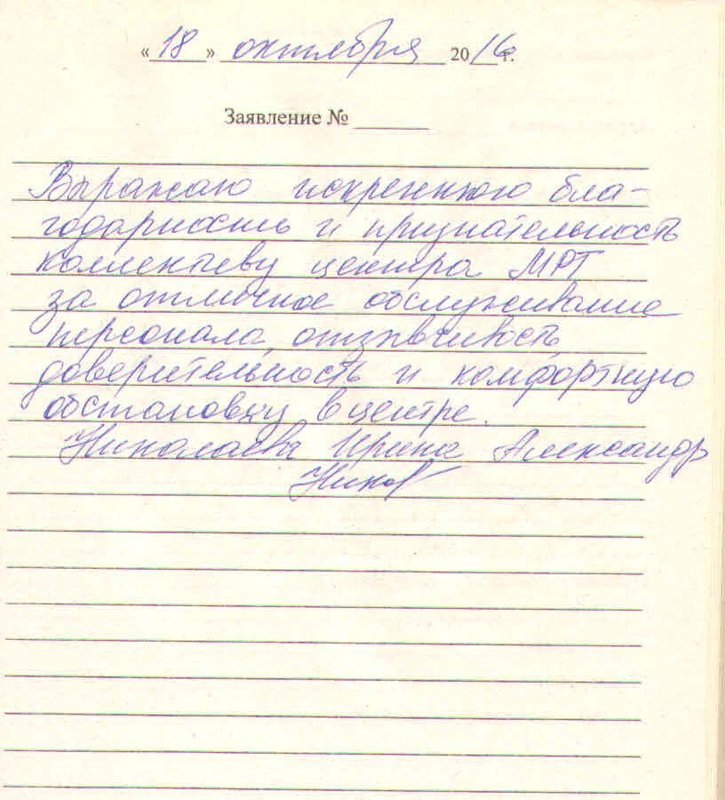 « 18 » октября 2016 г.
Заявление №
Выражаю искреннюю бла-
годарность и признательность
коллективу центра МРТ
за отличное обслуживание
персонала, отзывчивость
доверительность и комфортную
обстановку в центре.
Николаева Ирина Александр